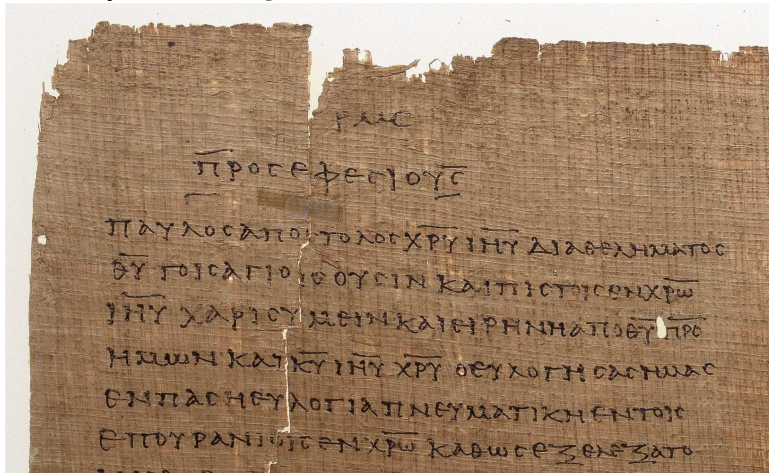 ΡΜϚ
ΠΡΟΣ ΕΦΕΣΙΟΥΣ
ΠΑΥΛΟΣ ΑΠΟΣΤΟΛΟΣ ΧΡΥ ΙΗΥ ΔΙΑ ΘΕΛΗΜΑΤΟΣ
ΘΥ ΤΟΙΣ ΑΓΙΟΙΣ ΟΥΣΙΝ ΚΑΙ ΠΙΣΤΟΙΣ ΕΝ ΧΡΩ
ΙΗΥ ΧΑΡΙΣ ΥΜΕΙΝ ΚΑΙ ΕΙΡΗΝΗ ΑΠΟ ΘΥ ΠΡΟ
ΗΜΩΝ ΚΑΙ ΚΥ ΙΗΥ ΧΡΥ Ο ΕΥΛΟΓΗΣΑΣ ΗΜΑΣ
ΕΝ ΠΑΣΗ ΕΥΛΟΓΙΑ ΠΝΕΥΜΑΤΙΚΗ ΕΝ ΤΟΙΣ
ΕΠΟΥΡΑΝΙΟΙΣ ΕΝ ΧΡΩ ΚΑΘΩΣ ΕΞΕΛΕΞΑΤΟ